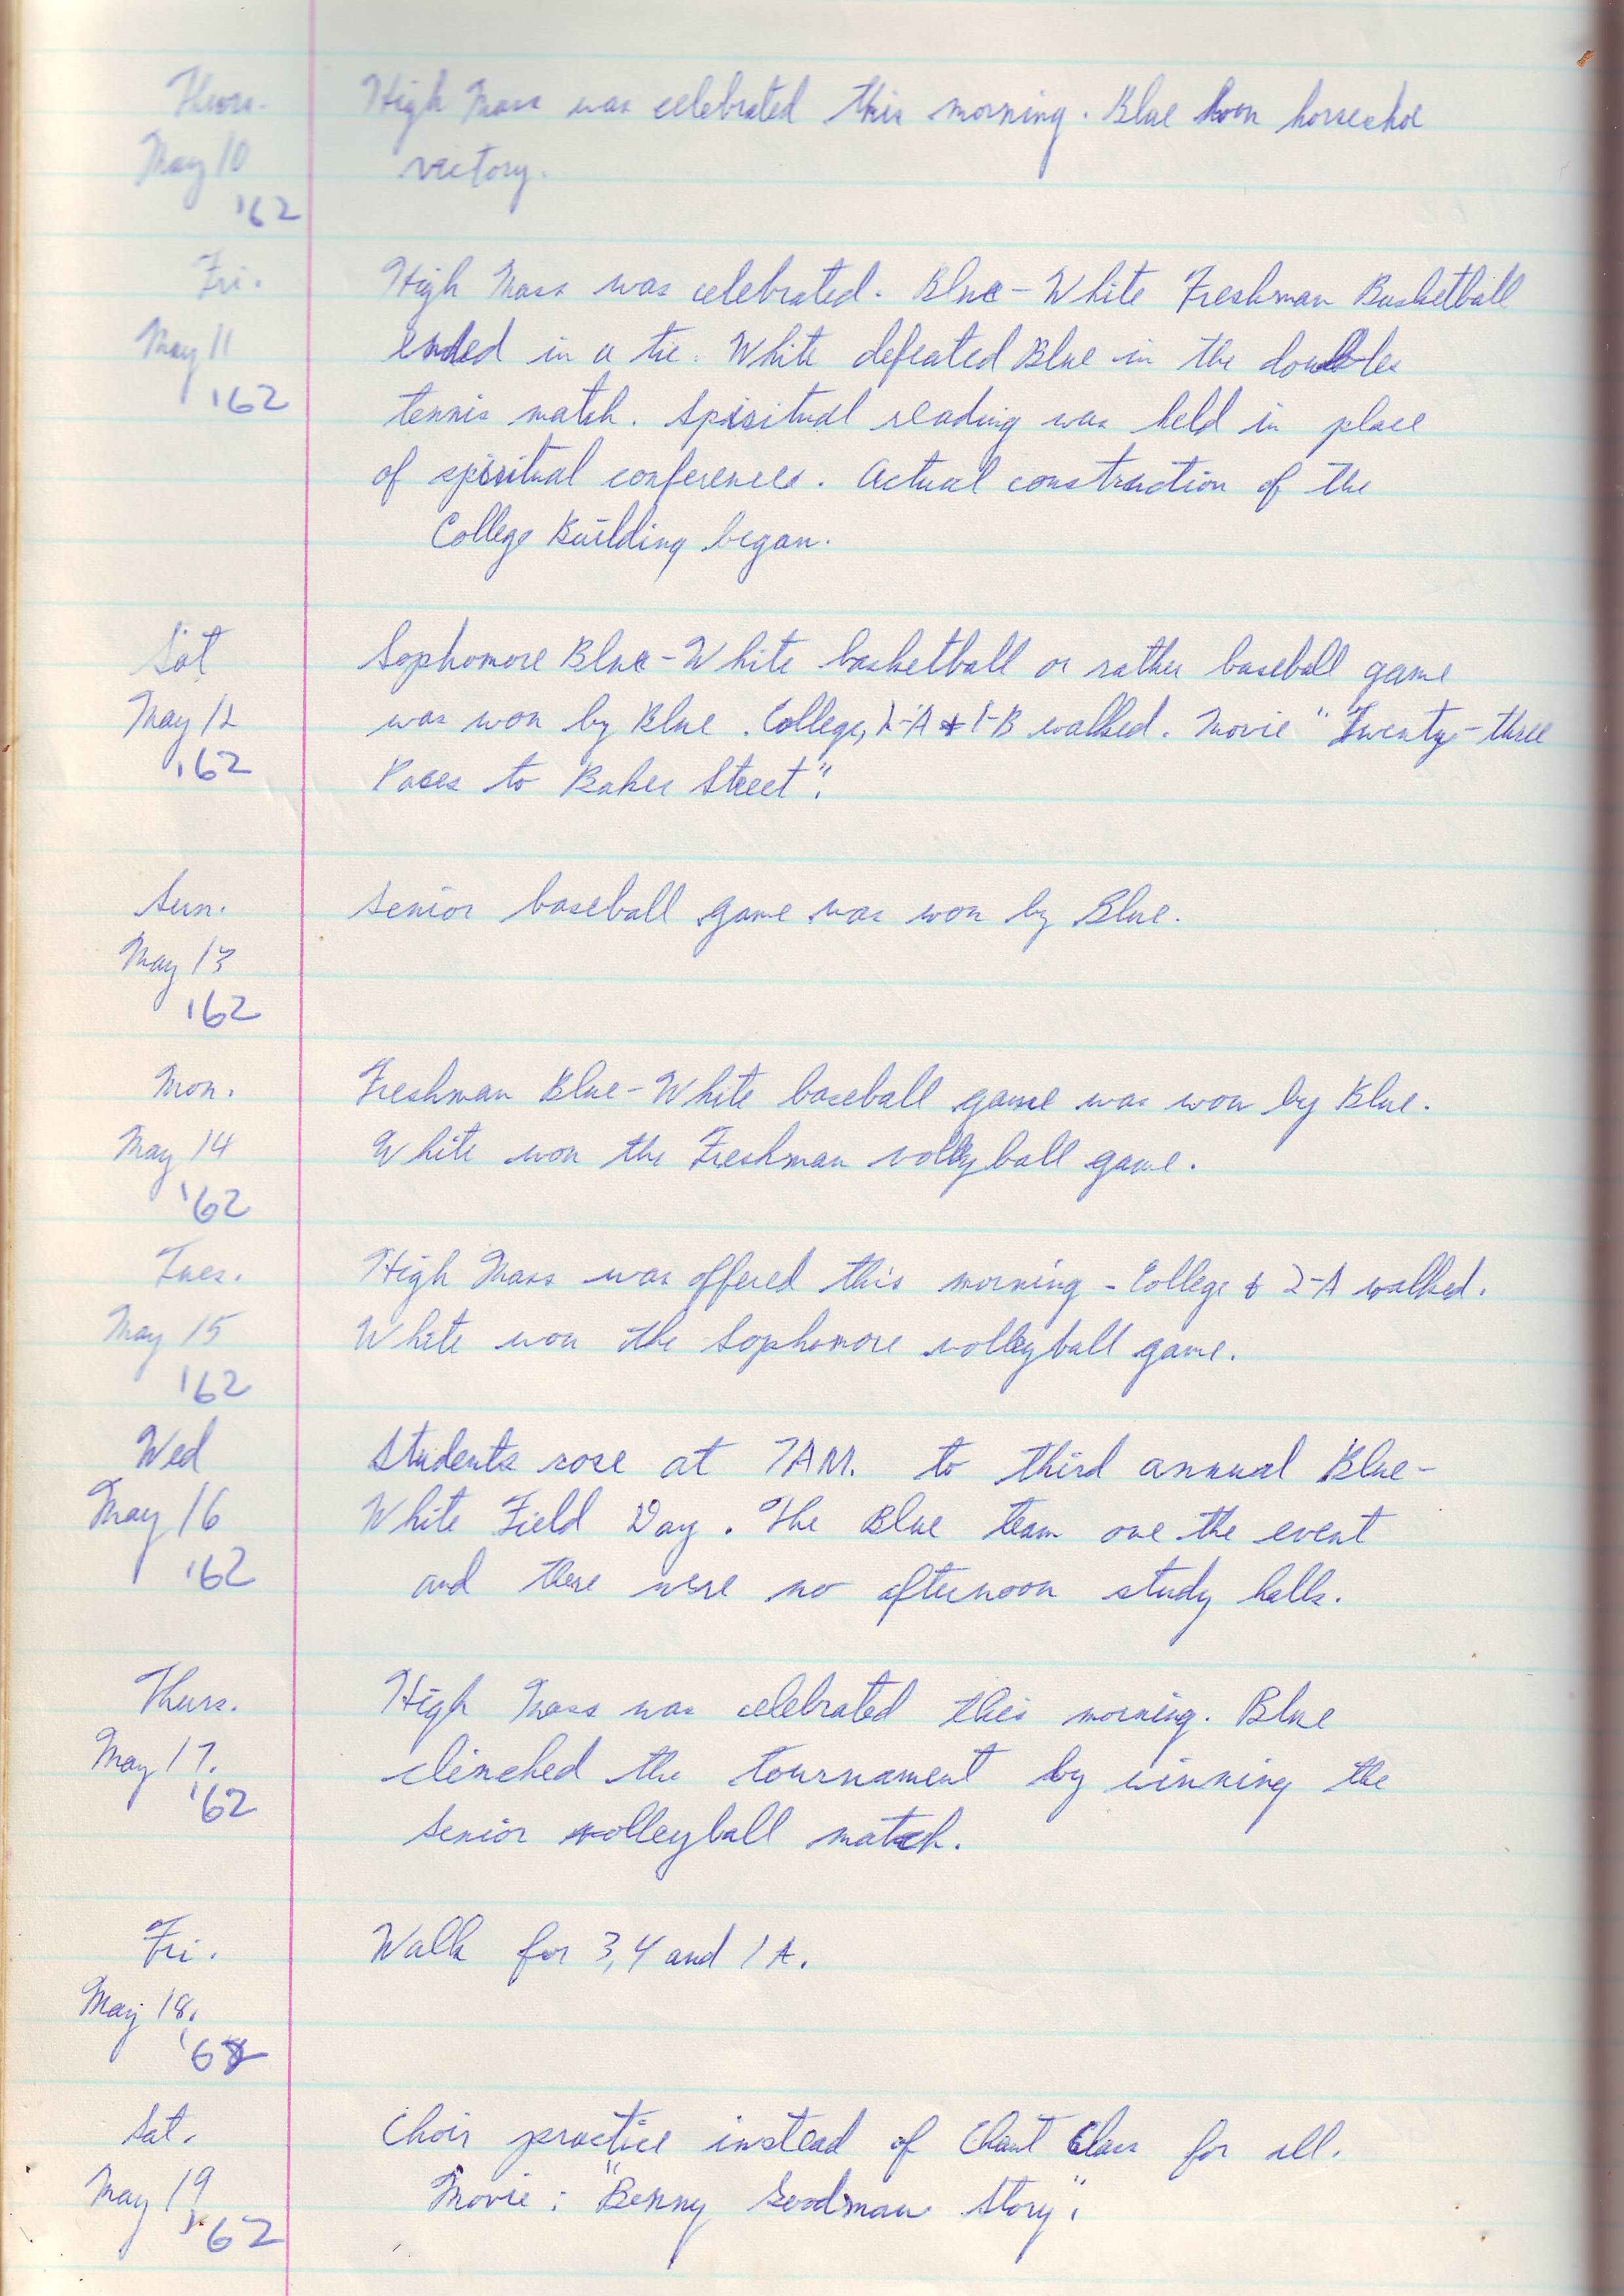 Thurs. High Mass was celebrated this morning. Blue won horseshoe
May 10 victory.
'62
Fri. High Mass was celebrated. Blue-White Freshman Basketball
May 11 ended in a tie. White defeated Blue in the doubles
'62 tennis match. Spiritual reading was held in place
of spiritual conferences. Actual construction of the
College Building began.
Sat Sophomore Blue-White basketball or rather baseball game
May 12 was won by Blue. College, 2-A & 1-B walked. Movie "Twenty-three
'62 Paces to Baker Street".
Sun. Senior baseball game was won by Blue.
May 13
'62
Mon. Freshman Blue-White baseball game was won by Blue.
May 14 White won the Freshman volleyball game.
'62
Tues. High Mass was offered this morning - College & 2-A walked.
May 15 White won the Sophomore volleyball game.
'62
Wed Students rose at 7AM. to third annual Blue-
May 16 White Field Day. The Blue team one the event
'62 and there were no afternoon study halls.
Thurs. High Mass was celebrated this morning. Blue
May 17. clinched the tournament by winning the
'62 senior volleyball match.
Fri. Walk for 3, 4 and 1A.
May 18,
'62
Sat. Choir practice instead of Chant Class for all.
May 19 Movie: "Benny Goodman Story".
'62